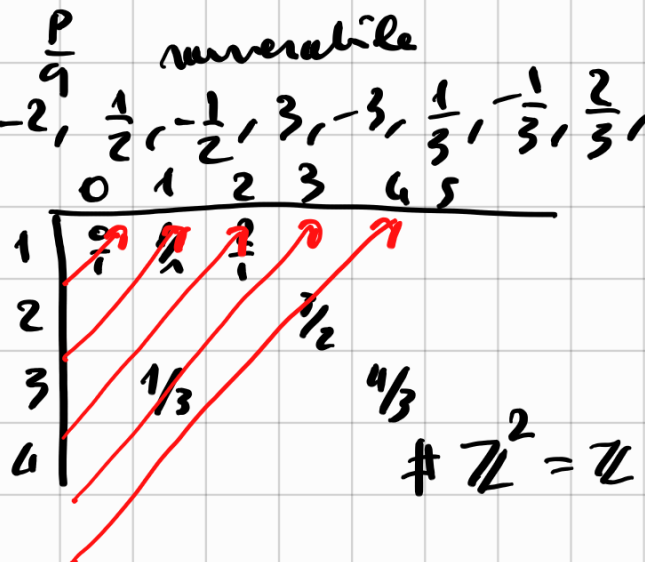 p/q numerabile
-2, 1/2, -1/2, 3, -3, 1/3, -1/3, 2/3,
0 1 2 3 4 5
1 0/1 1/1 2/1
2 3/2
3 1/3 4/3
4 # ℤ² = ℤ